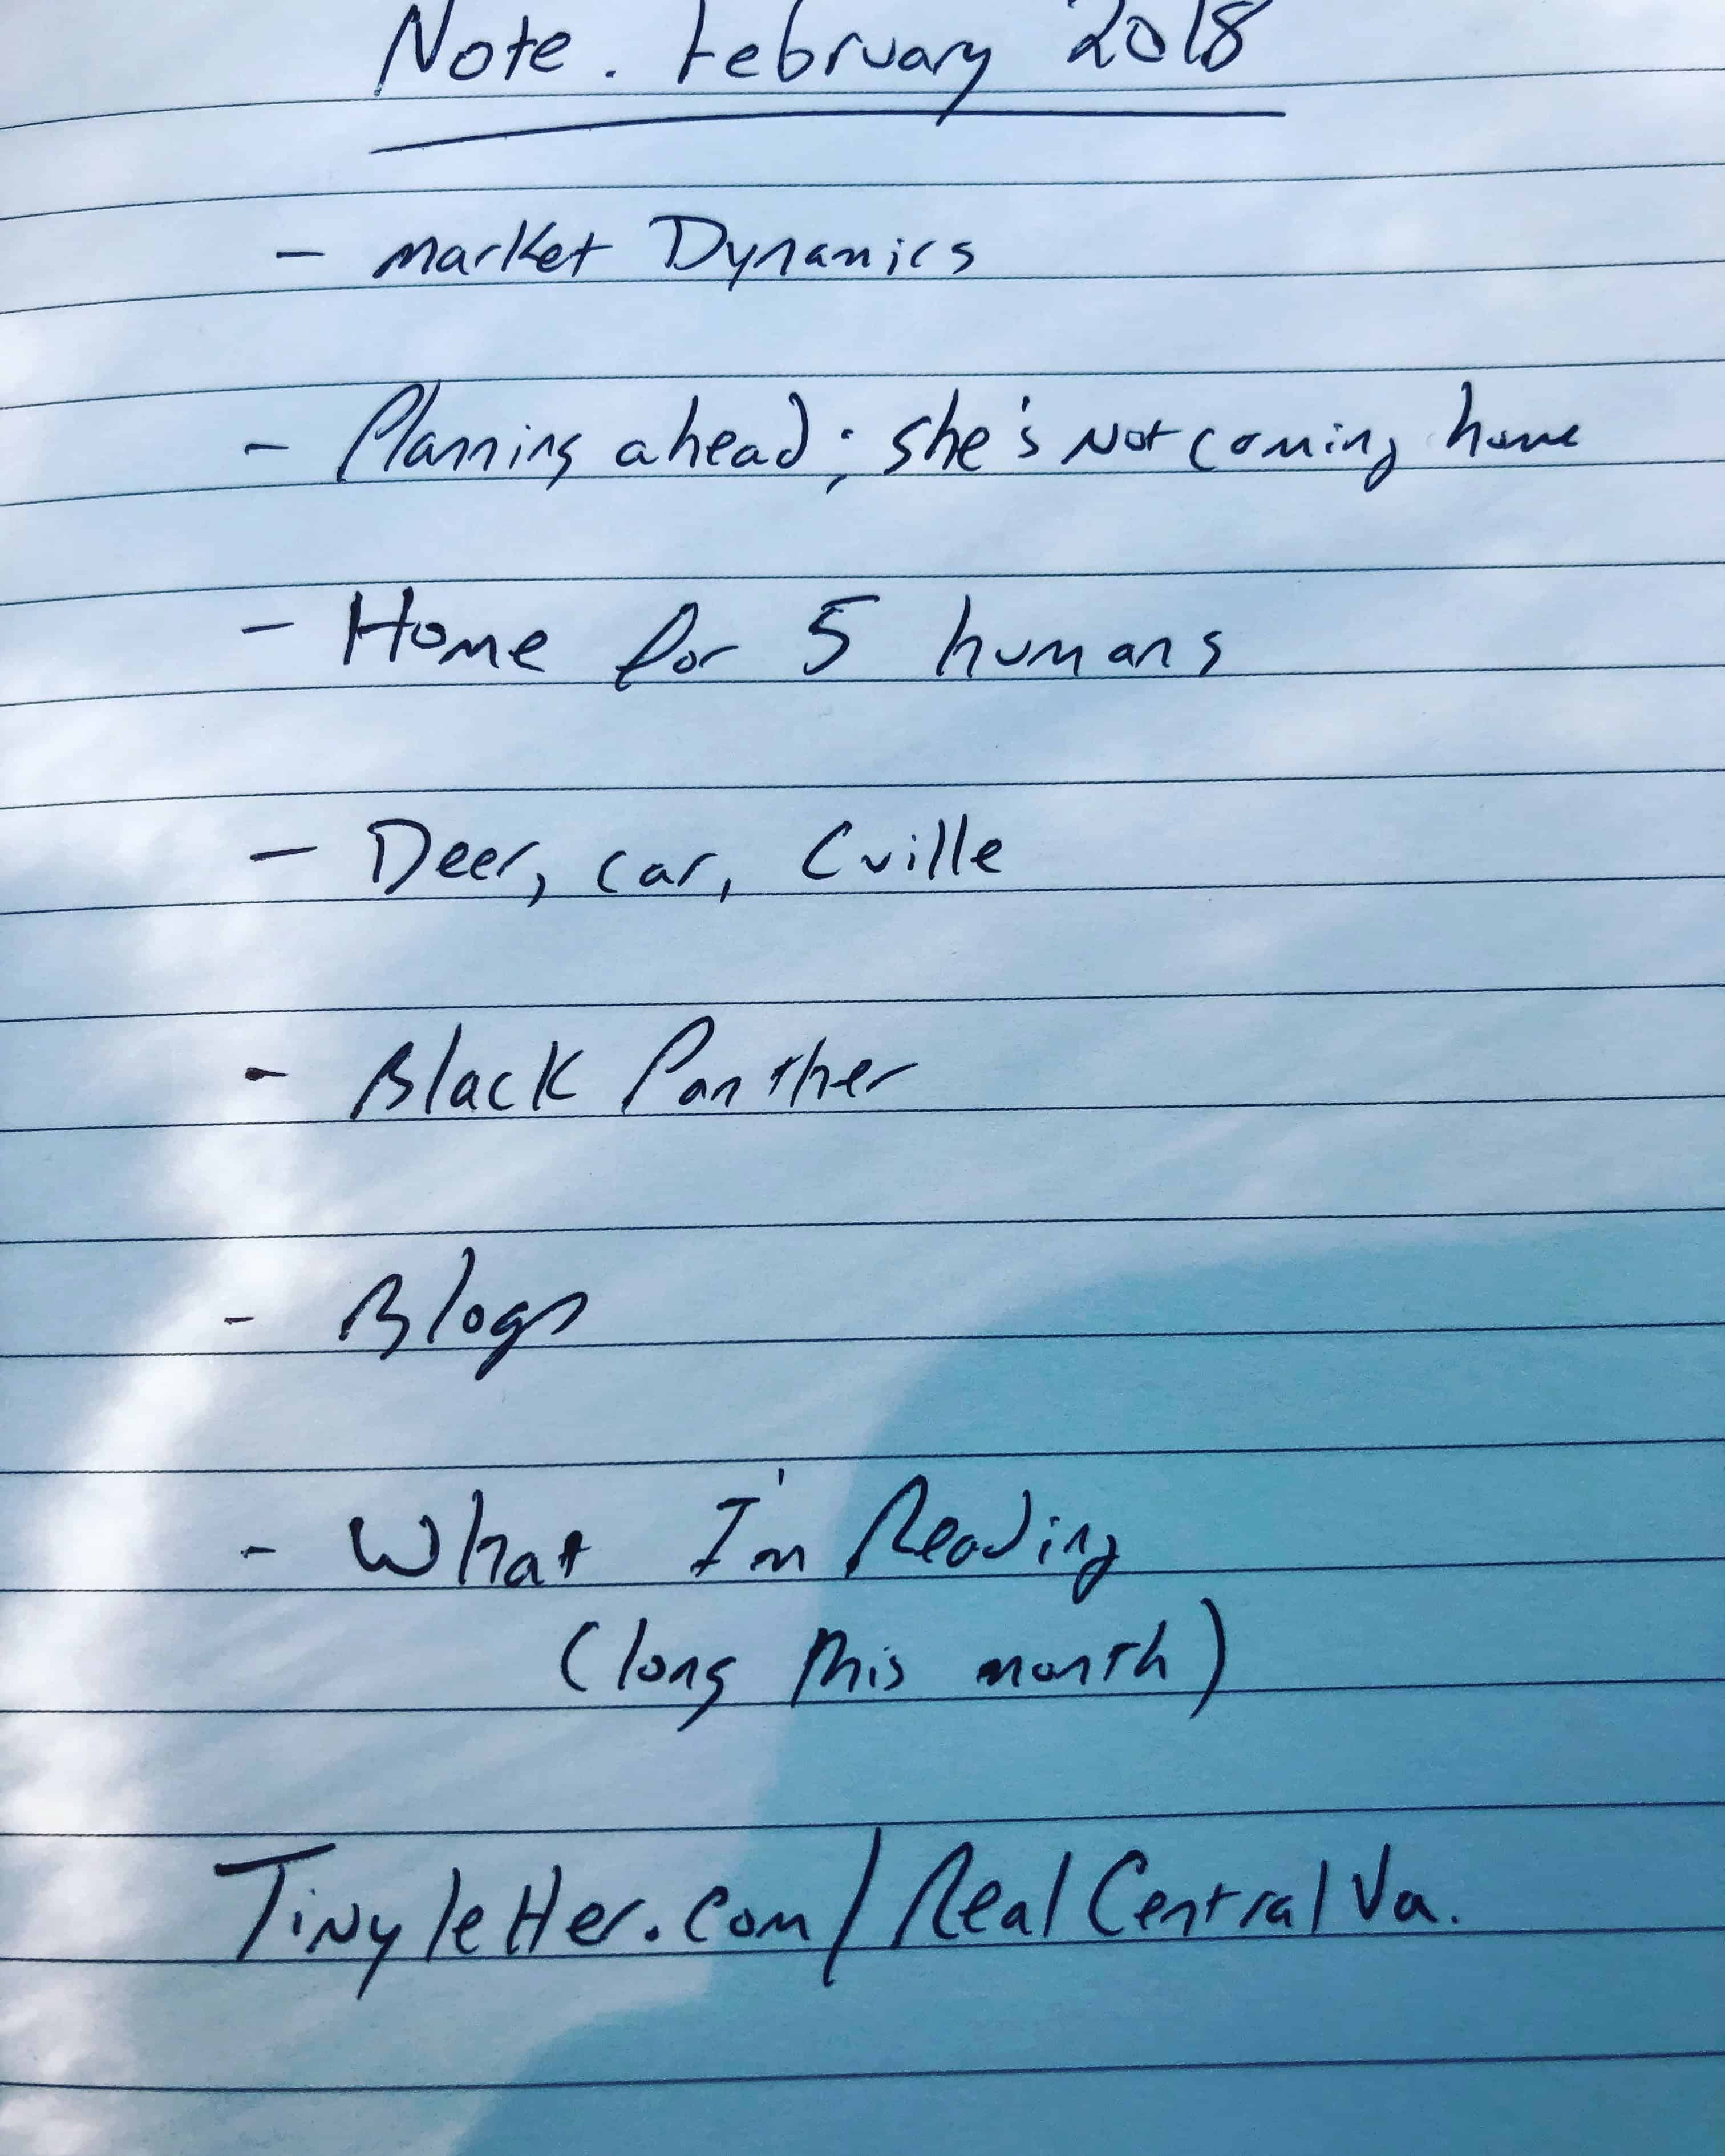 Note. February 2018
- Market Dynamics
- Planning ahead; she's Not coming home
- Home for 5 humans
- Deer, car, Cville
- Black Panther
- Blogs
- What I'm Reading
(long this month)
TinyletTer.com/RealCentralVa.